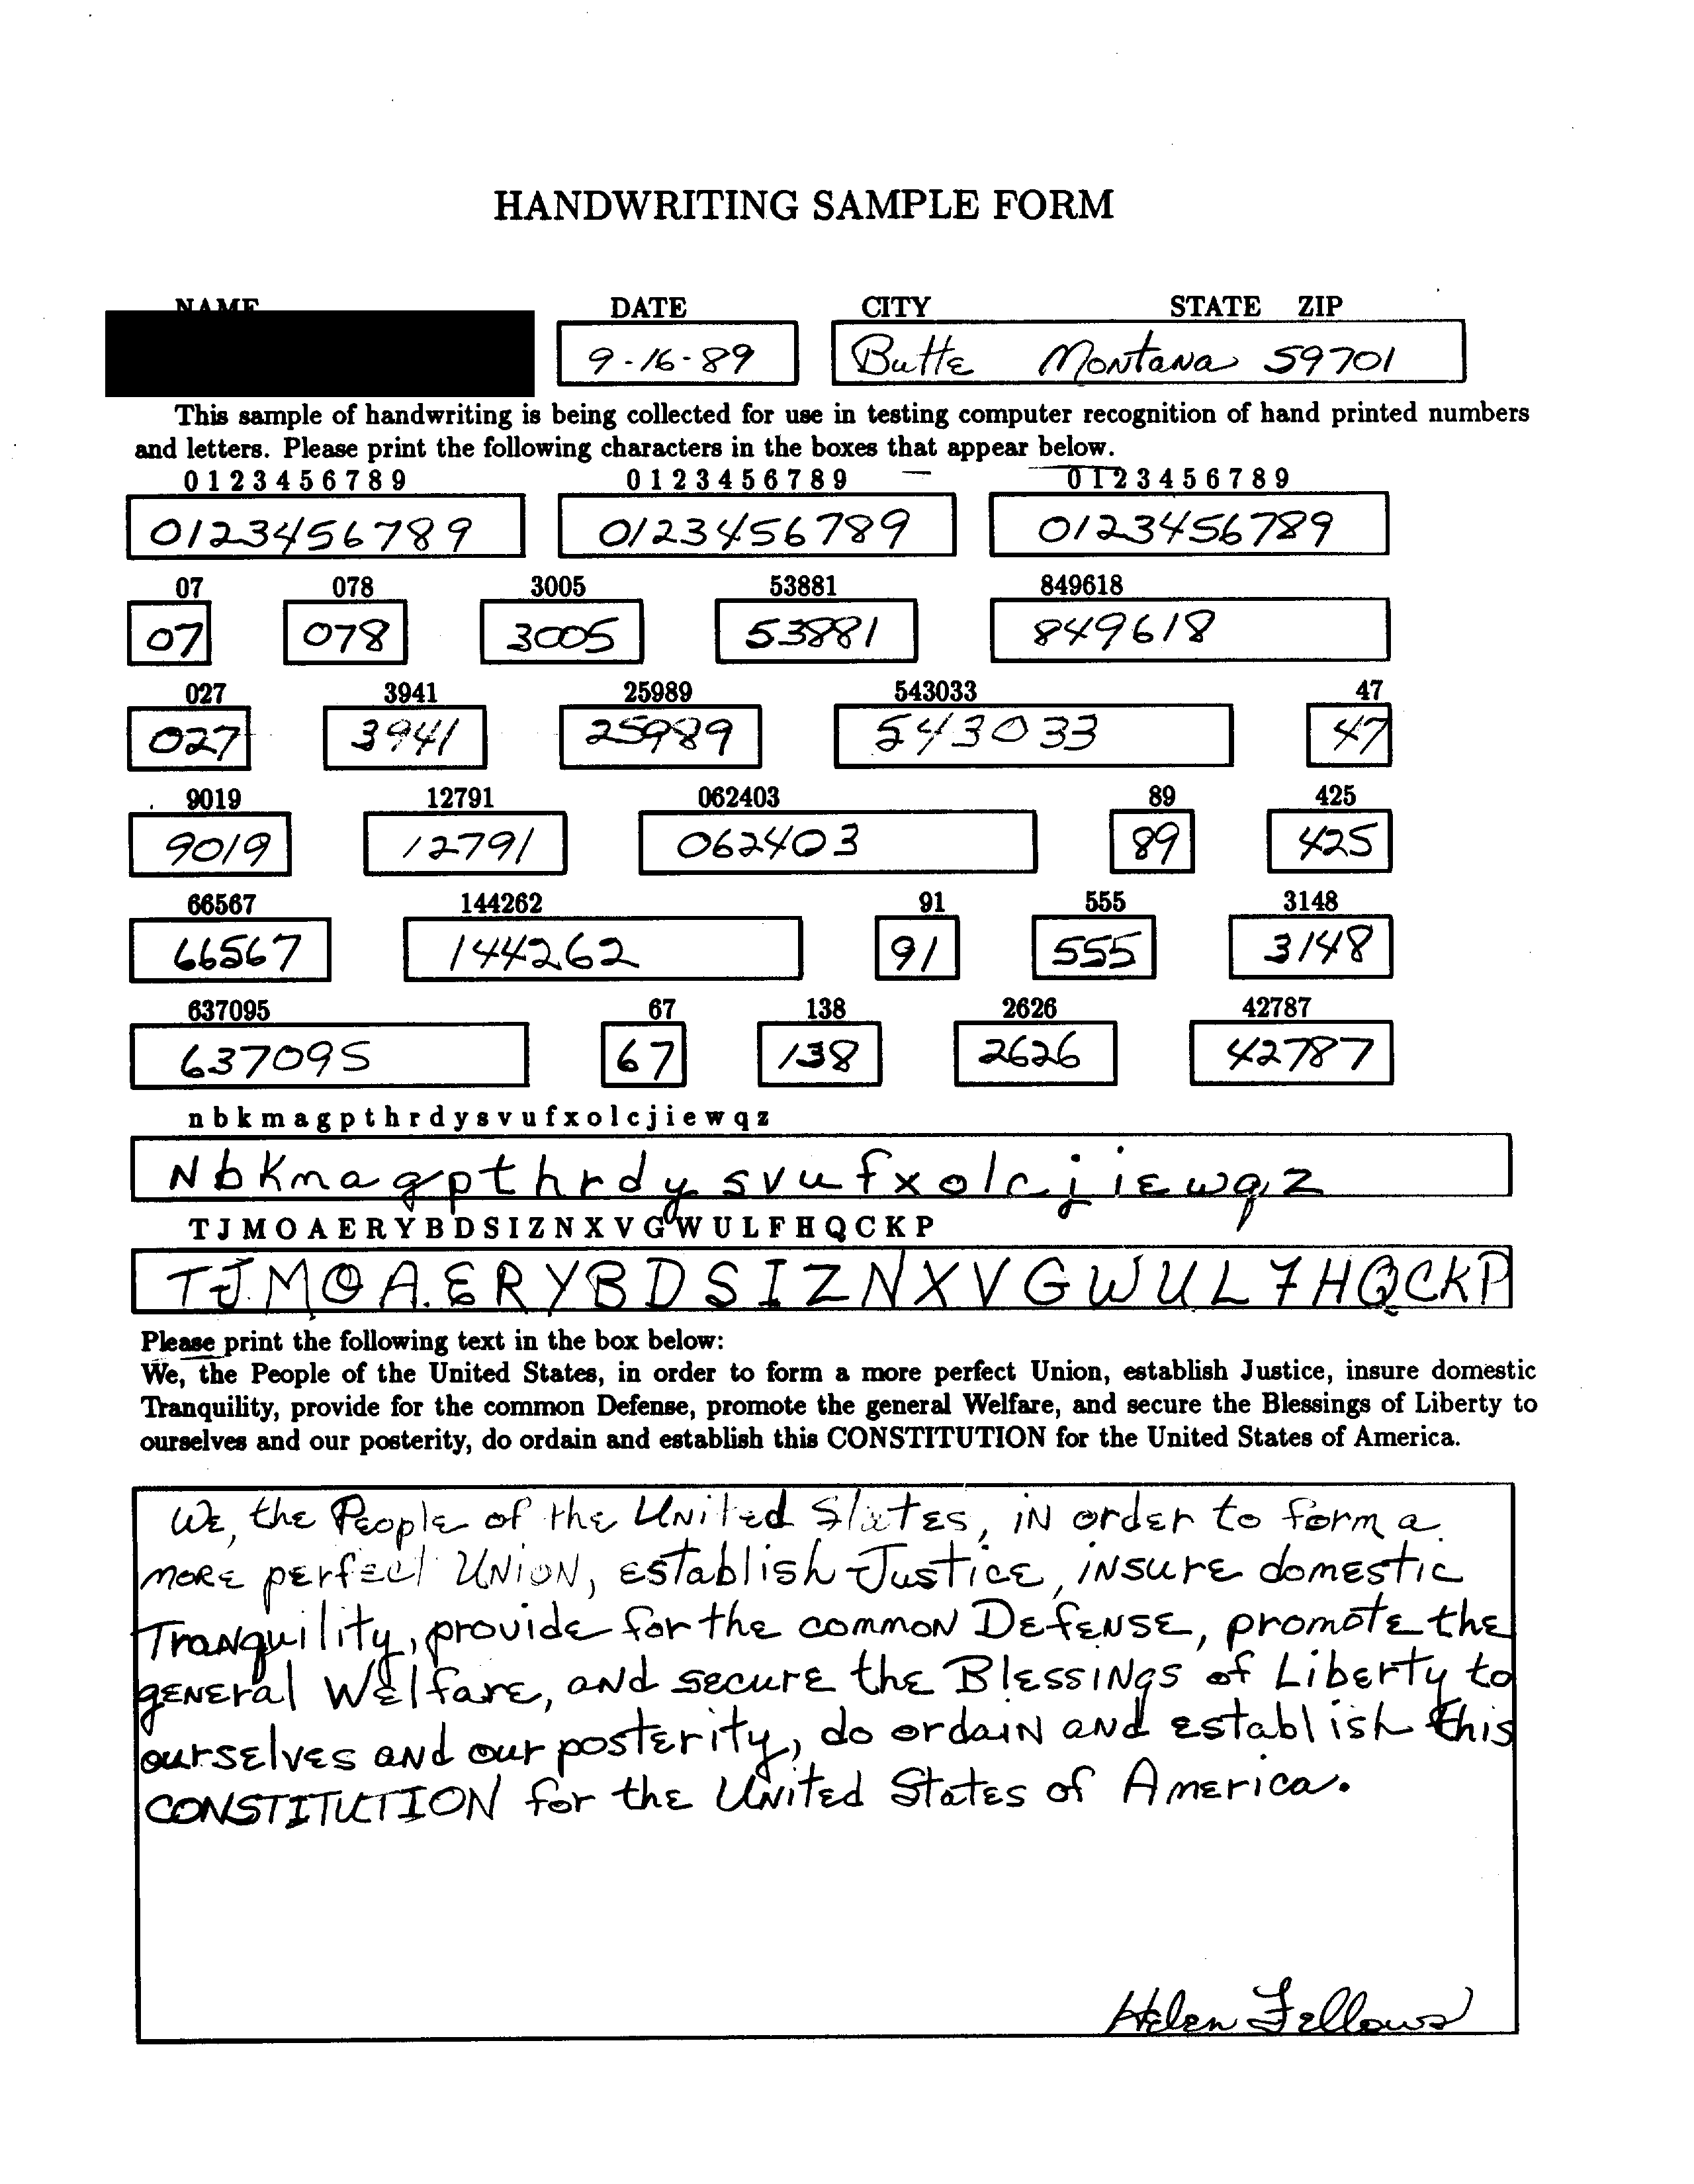 HANDWRITING SAMPLE FORM
NAME DATE CITY STATE ZIP
9-16-89 Butte Montana 59701
This sample of handwriting is being collected for use in testing computer recognition of hand printed numbers
and letters. Please print the following characters in the boxes that appear below.
0 1 2 3 4 5 6 7 8 9 0 1 2 3 4 5 6 7 8 9 0 1 2 3 4 5 6 7 8 9
0123456789 0123456789 0123456789
07 078 3005 53881 849618
07 078 3005 53881 849618
027 3941 25989 543033 47
027 3941 25989 543033 47
9019 12791 062403 89 425
9019 12791 062403 89 425
66567 144262 91 555 3148
66567 144262 91 555 3148
637095 67 138 2626 42787
637095 67 138 2626 42787
n b k m a g p t h r d y s v u f x o l c j i e w q z
N b k m a g p t h r d y s v u f x o l c j i e w q z
T J M O A E R Y B D S I Z N X V G W U L F H Q C K P
T J M O A E R Y B D S I Z N X V G W U L F H Q C K P
Please print the following text in the box below:
We, the People of the United States, in order to form a more perfect Union, establish Justice, insure domestic
Tranquility, provide for the common Defense, promote the general Welfare, and secure the Blessings of Liberty to
ourselves and our posterity, do ordain and establish this CONSTITUTION for the United States of America.
We, the People of the United States, in order to form a
more perfect Union, establish Justice, insure domestic
Tranquility, provide for the common Defense, promote the
general Welfare, and secure the Blessings of Liberty to
ourselves and our posterity, do ordain and establish this
CONSTITUTION for the United States of America.
Helen Fellows